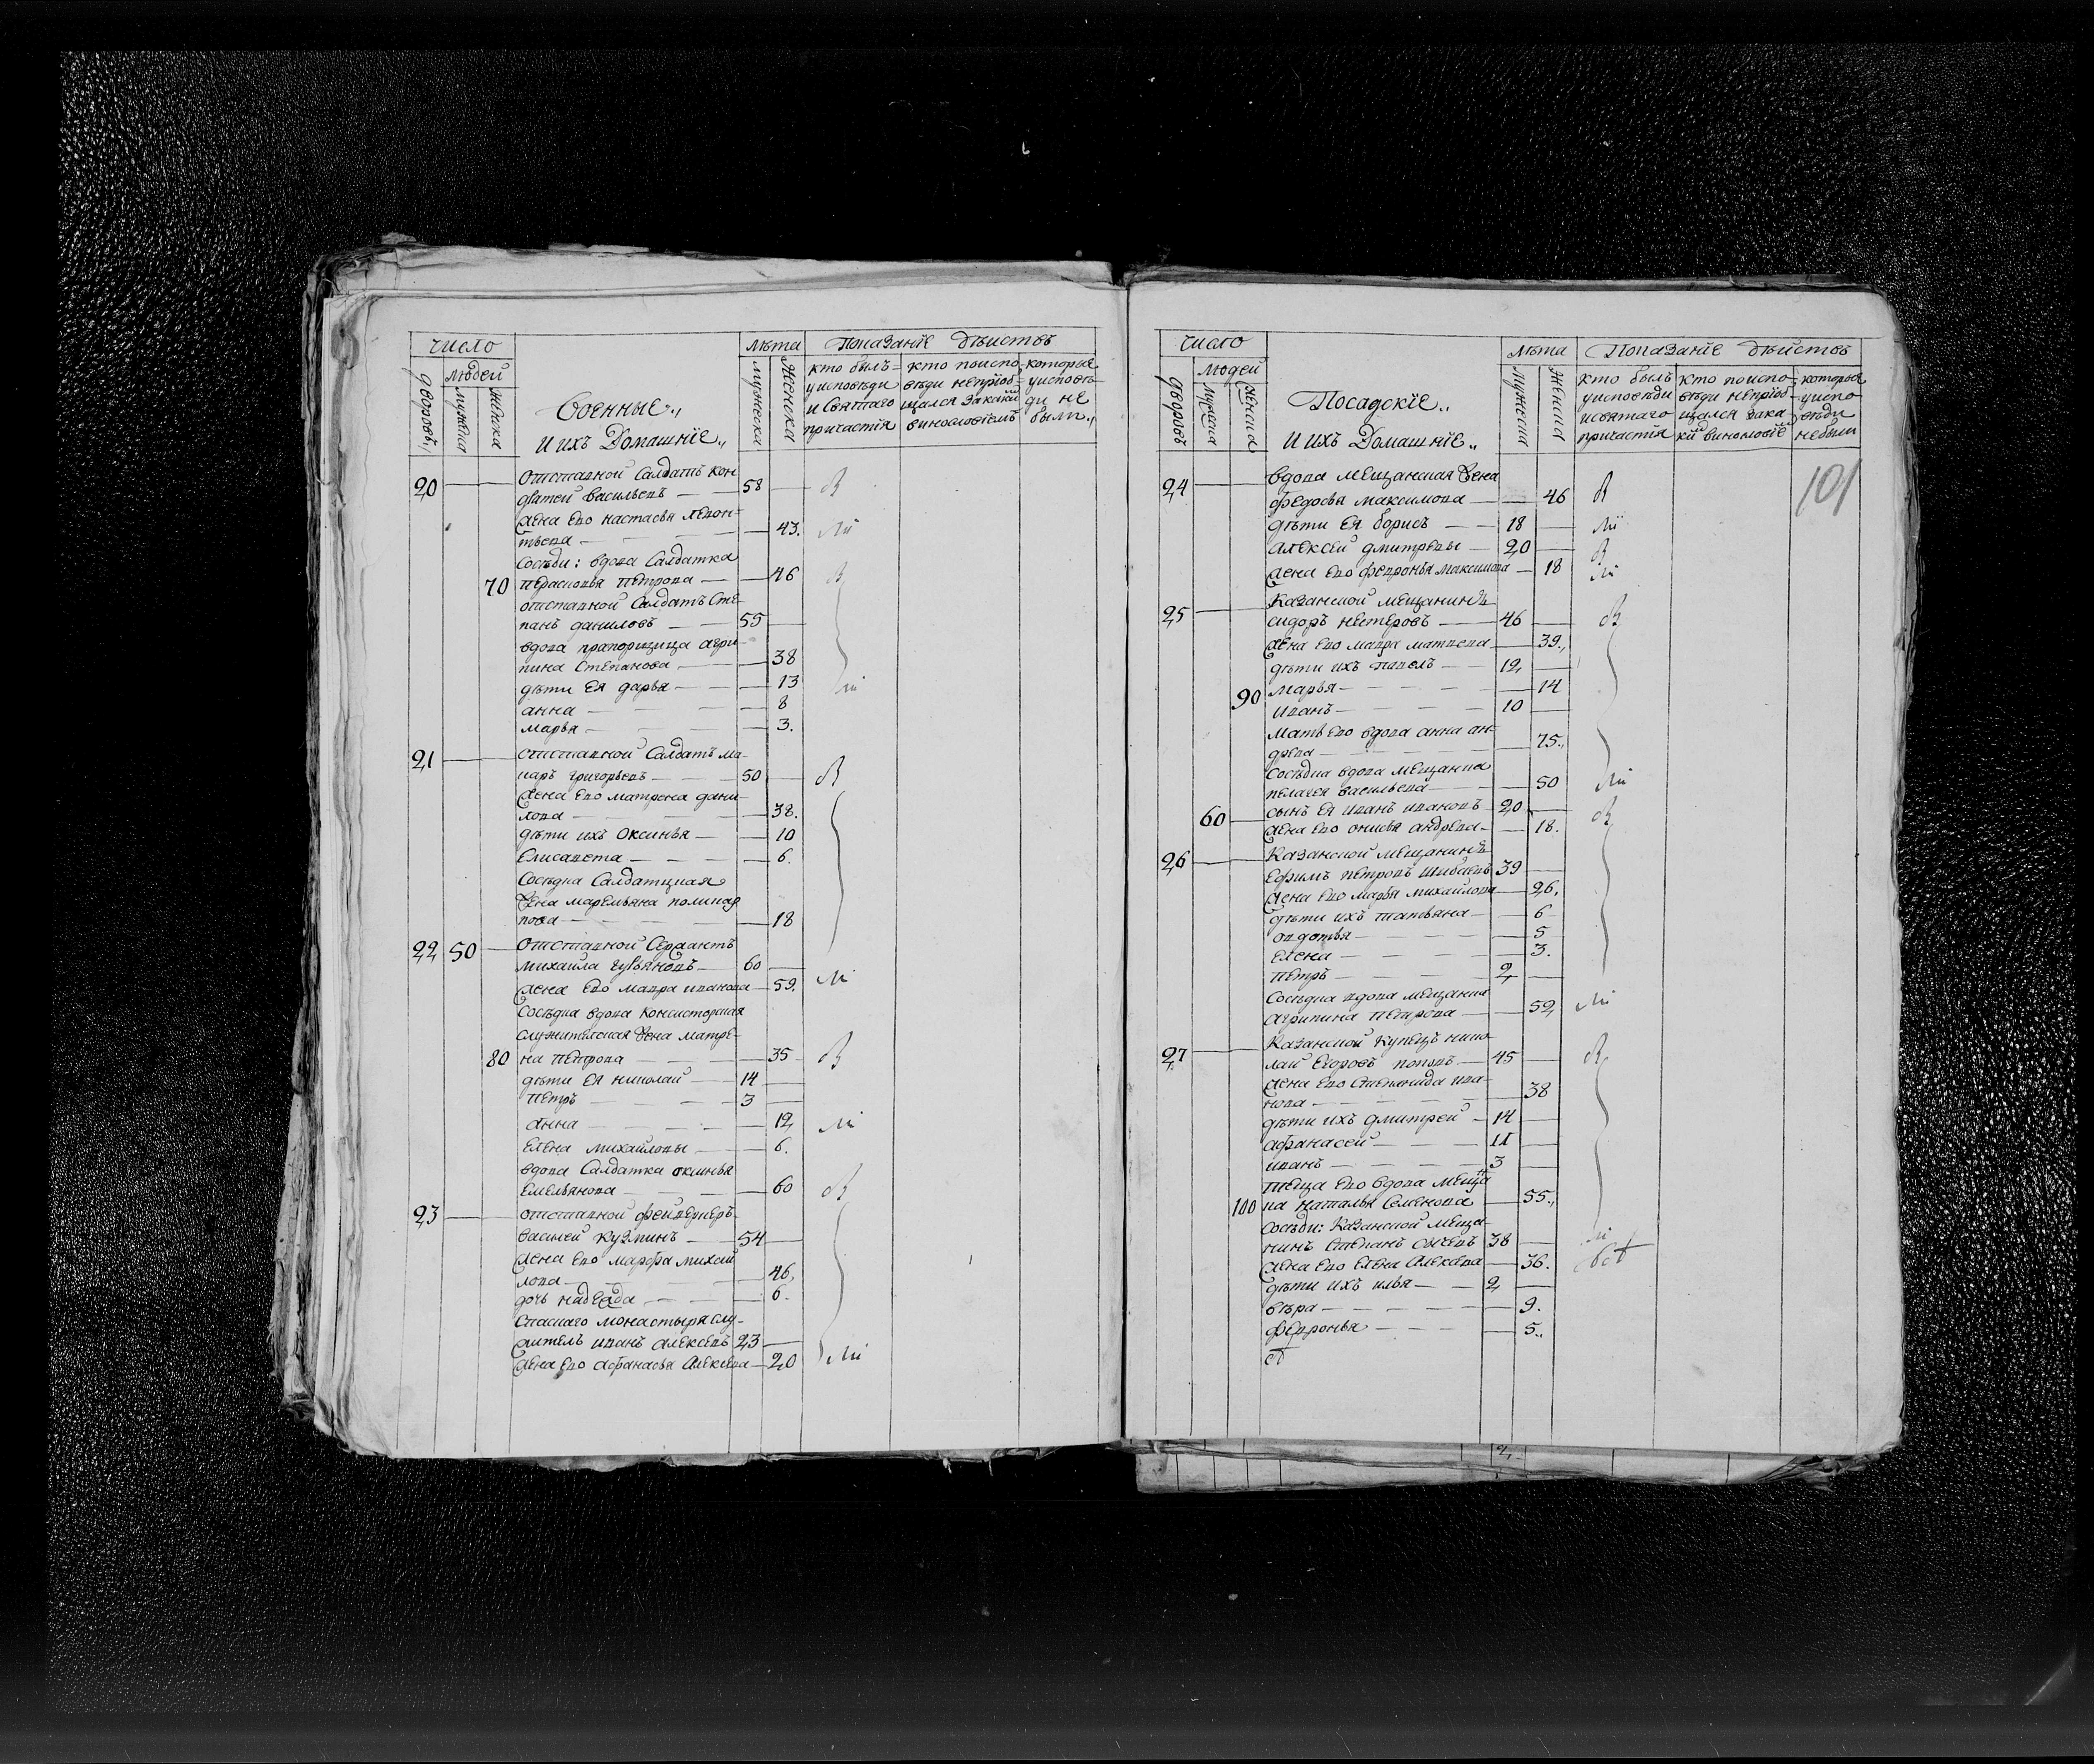 число
людей
дворовъ
мужеска
женска
Военные
И ихъ Домашнїе
лѣта
мужеска
женска
Показанїе Дѣйствъ
кто былъ
у исповѣди
и Святаго
причастїя
кто по испо-
вѣди не прїоб-
щался за какимъ
винословїемъ
которые
у исповѣ-
ди не
были
20
отставной Салдатъ Кон
фатей васильевъ 58
жена ево настасья Левон-
тьева 43.
Сосѣди: вдова Салдатка
70 перасковья петрова 46
отставной Салдатъ Сте-
панъ даниловъ 55
вдова прапорщица агри-
пина Степанова 38
дѣти ея дарья 13
анна 8
марья 3.
21
отставной Салдатъ ма-
каръ григорьевъ 50
жена ево матрена дани-
лова 38.
дѣти ихъ Оксинья 10
Елисавета 6.
Сосѣдка Салдатцкая
жена маремьяна поликар
пова 18
22 50 отставной Сержантъ
михайла гурьяновъ 60
жена ево мавра иванова 59.
Сосѣдка вдова Консисторская
служительская жена матре-
80 на петрова 35
дѣти ея николай 14
петръ 3
анна 12
Елена михайловы 6.
вдова Салдатка оксинья
Емельянова 60
23
отставной фейверкеръ
василей кузминъ 54
жена ево марфа михай
лова 46,
дочь надежда 6.
Спаскаго монастыря слу-
житель иванъ алексевъ 23
жена ево афанасья Алексева 20
число
людей
дворовъ
мужеска
женска
Посадскїе
И ихъ Домашнїе
лѣта
мужеска
женска
Показанїе Дѣйствъ
кто былъ
у исповѣди
и святаго
причастїя
кто по испо-
вѣди не прїоб-
щался за ка-
кимъ винословїемъ
которые
у испо
вѣди
не были
101
24
вдова мещанская жена
федосья максимова 46
дѣти ея борисъ 18
алексей дмитревы 20
жена ево февронья максимова 18
25
Казанской мещанинъ
сидоръ нестеровъ 46
жена ево мавра матвева 39.
дѣти ихъ павелъ 12
90 марья 14
иванъ 10
мать ево вдова анна ан-
древа 75.
Сосѣдка вдова мещанка
пелагея васильева 50
60 сынъ ея иванъ ивановъ 20
жена ево онисья андрева 18.
26
Казанской мещанинъ
Ефимъ петровъ Шибаевъ 39
жена ево марья михайлова 26.
дѣти ихъ татьяна 6
овдотья 5
Елена 3.
петръ 2
Сосѣдка вдова мещанка
агрипина петрова 52
27
Казанской купецъ нико
лай Егоровъ поповъ 45
жена ево Степанида ива-
нова 38
дѣти ихъ дмитрей 14
афанасей 11
иванъ 3
теща ево вдова меща
100 ка наталья Семенова 55.
Сосѣди: Казанской меща-
нинъ Степанъ Сычевъ 38
жена ево Елена Алексева 36.
дѣти ихъ илья 2
вѣра 9.
февронья 5.